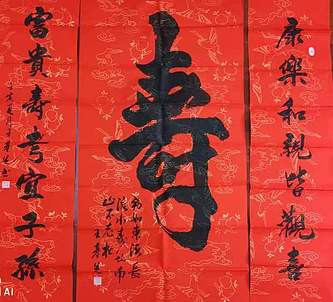 康樂和親皆觀喜
壽
福如東海長
流水壽比南
山不老松
富貴壽考宜子孫
AI